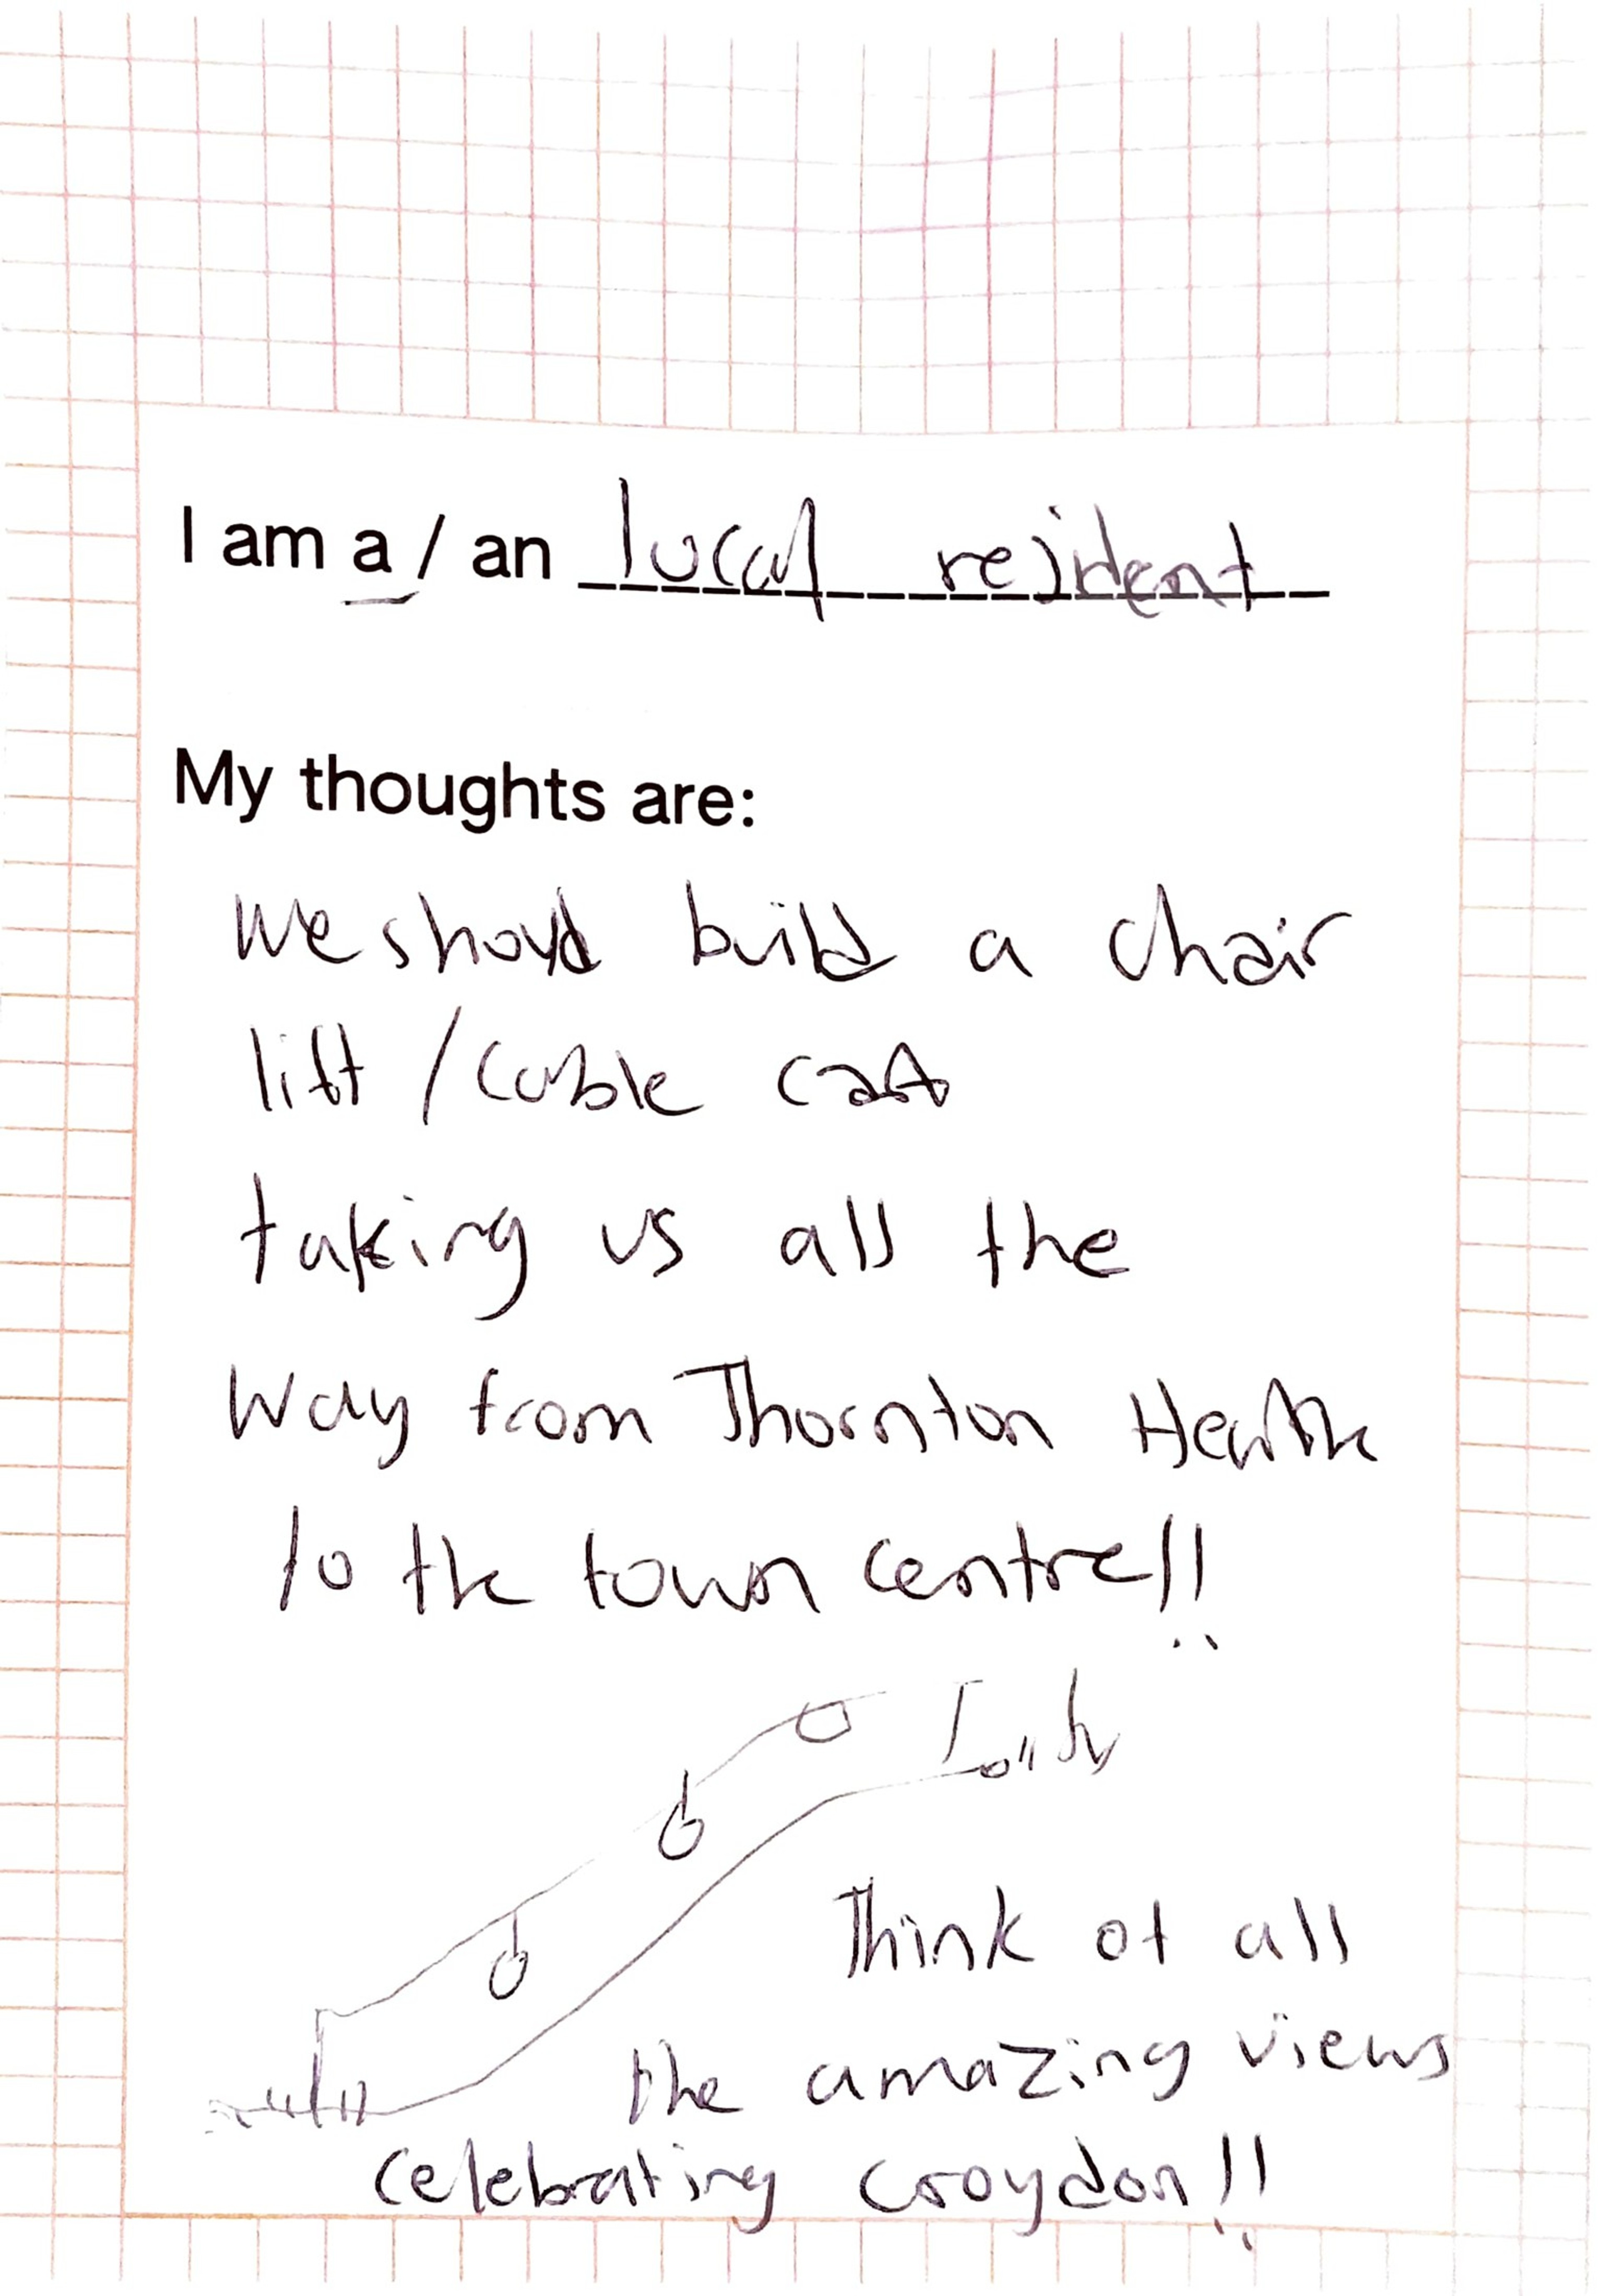 I am a / an local resident
My thoughts are:
We should build a chair
lift / cable car
taking us all the
way from Thornton Heath
to the town centre!!
Think of all
the amazing views
celebrating Croydon!!